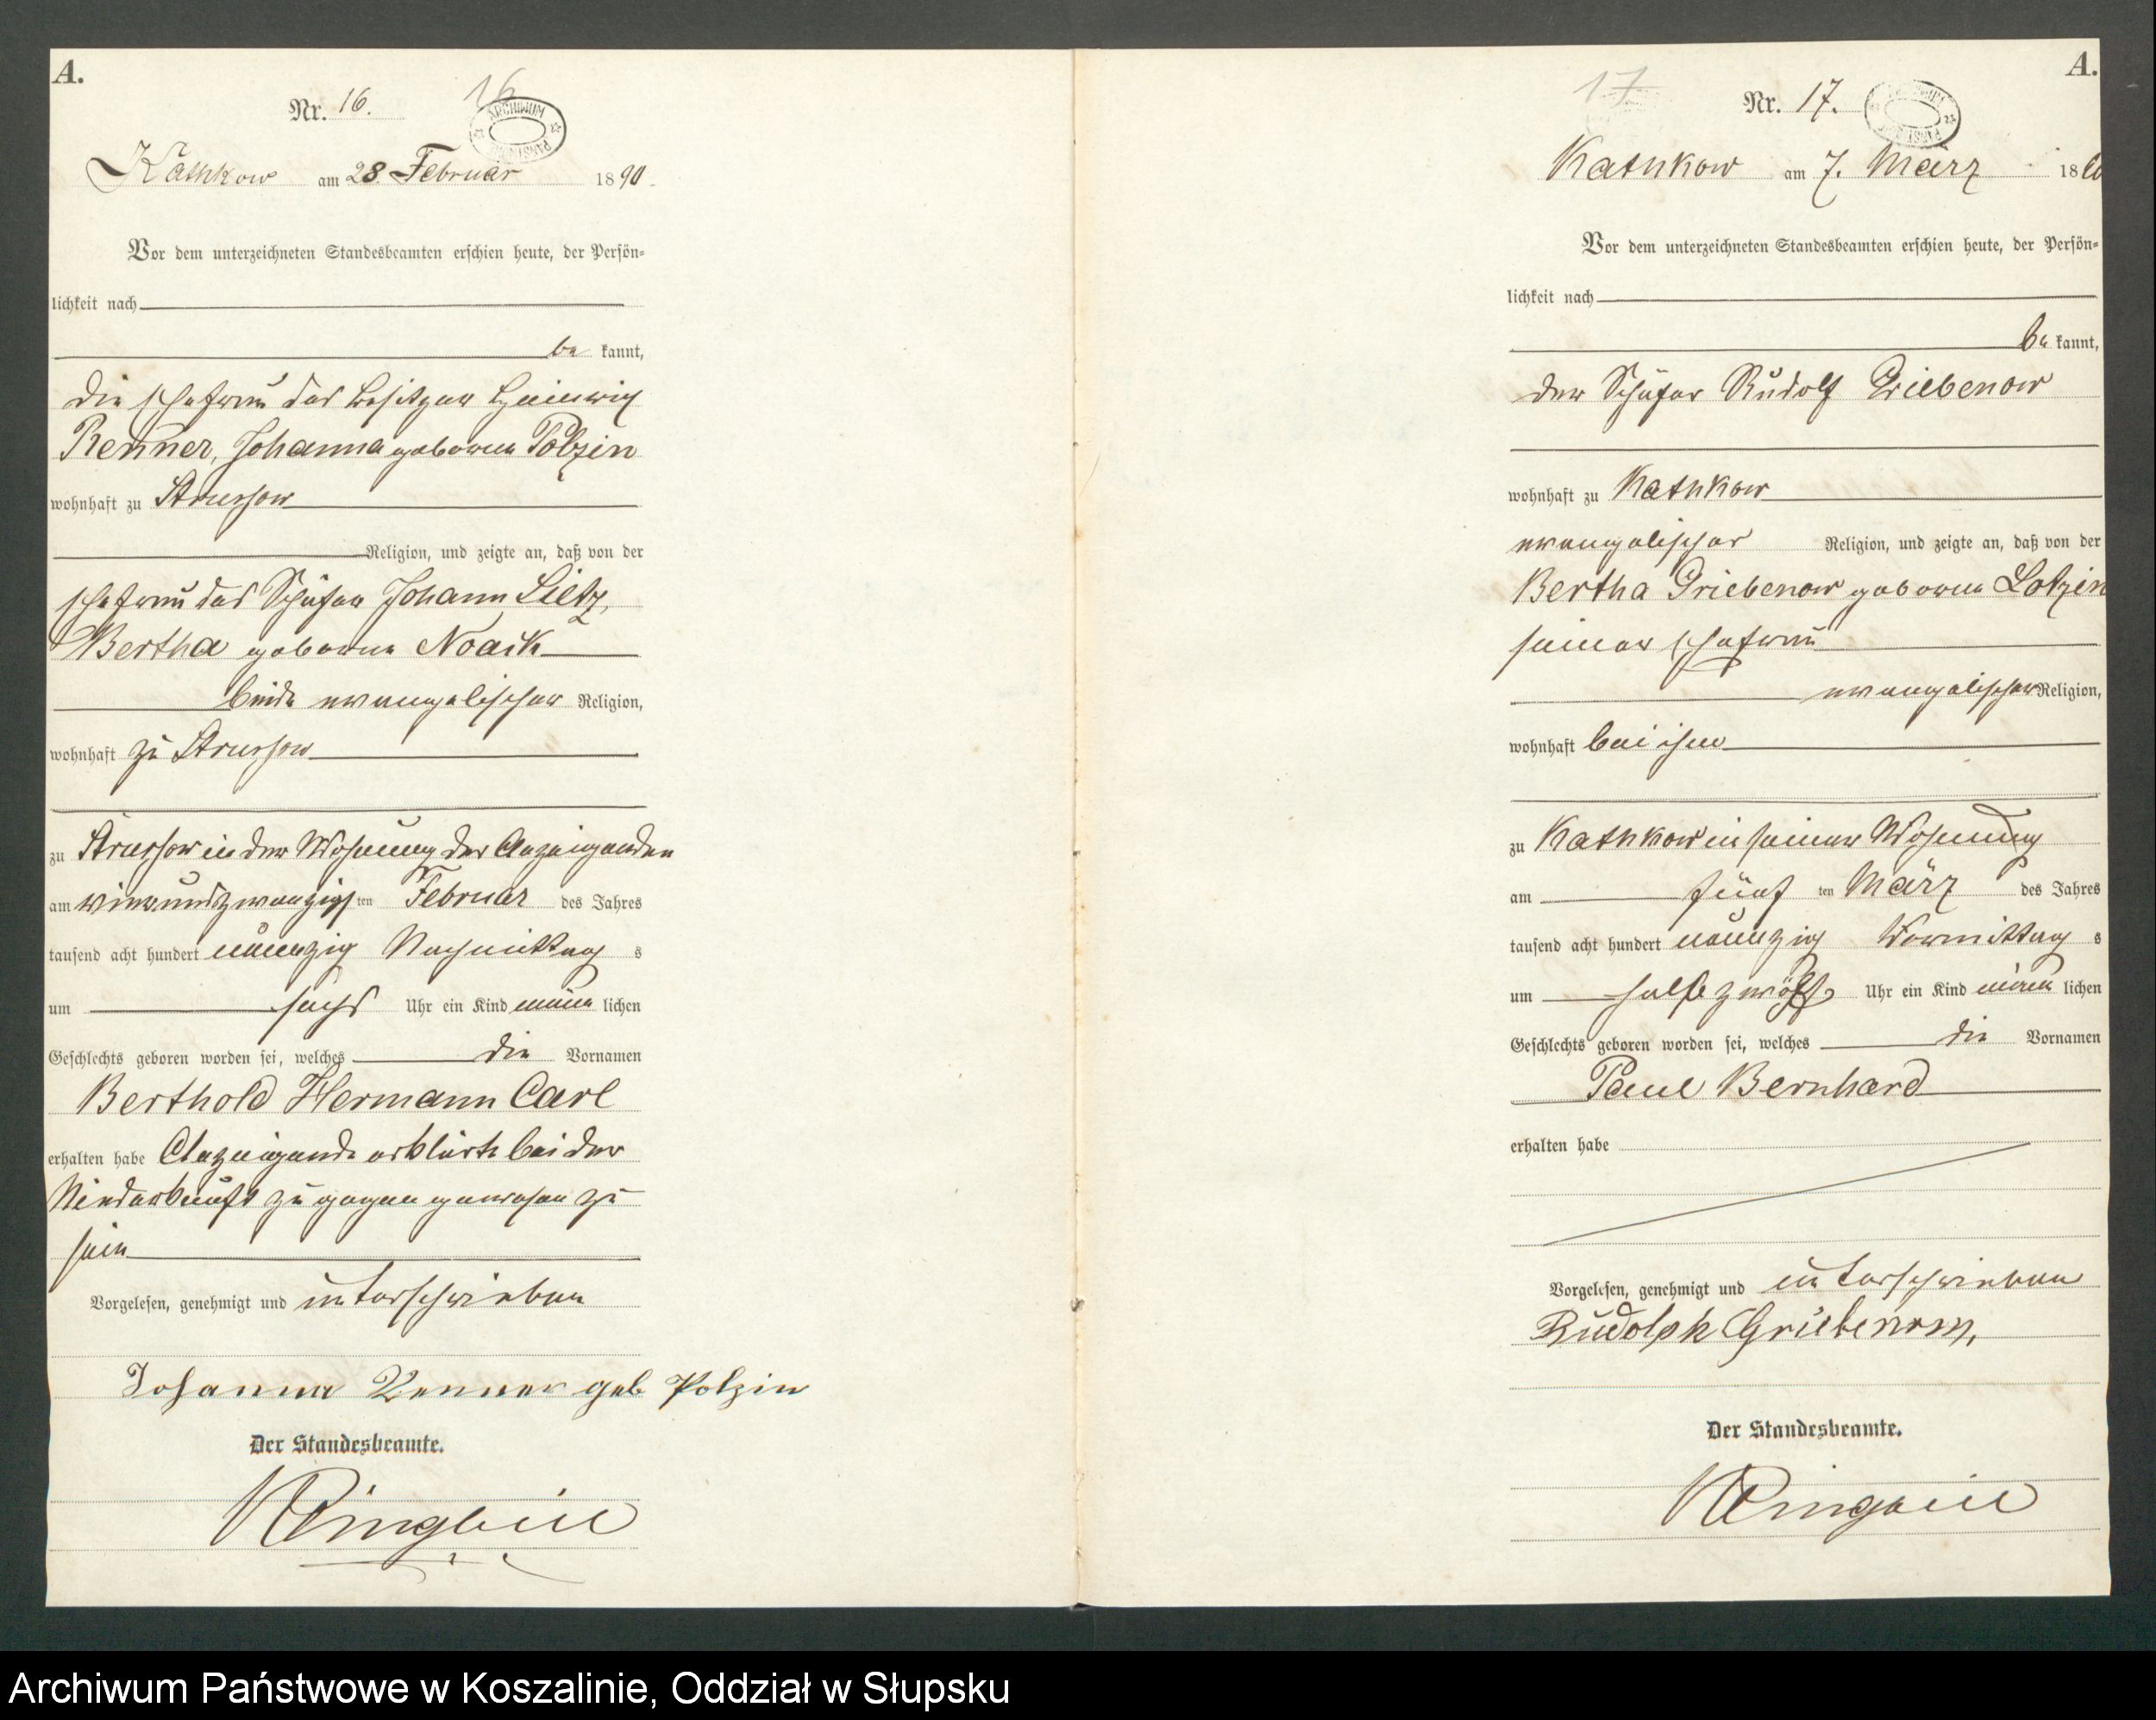 A.
Nr. 16.
16
ARCHIWUM
Kathkow am 28. Februar 1890.
Vor dem unterzeichneten Standesbeamten erschien heute, der Persön-
lichkeit nach
be kannt,
die Ehefrau des Besitzer Heinrich
Renner, Johanna geborne Polzin
wohnhaft zu Strussow
Religion, und zeigte an, daß von der
Ehefrau des Schäfer Johann Lietz,
Bertha geborne Noack
beide evangelischer Religion,
wohnhaft zu Strussow
zu Strussow in der Wohnung der Anzeigenden
am vierundzwanzigsten Februar des Jahres
tausend acht hundert neunzig Nachmittag s
um sechs Uhr ein Kind männ lichen
Geschlechts geboren worden sei, welches die Vornamen
Berthold Hermann Carl
erhalten habe Anzeigende erklärte bei der
Niederkunft zugegen gewesen zu
sein
Vorgelesen, genehmigt und unterschrieben
Johanna Renner geb Polzin
Der Standesbeamte.
A.
17
Nr. 17.
Kathkow am 7. März 18
Vor dem unterzeichneten Standesbeamten erschien heute, der Persön-
lichkeit nach
be kannt,
der Schäfer Rudolf Griebenow
wohnhaft zu Kathkow
evangelischer Religion, und zeigte an, daß von der
Bertha Griebenow geborne Lotzin
seiner Ehefrau
evangelischer Religion,
wohnhaft bei ihm
zu Kathkow in seiner Wohnung
am fünf ten März des Jahres
tausend acht hundert neunzig Vormittag s
um halb zwölf Uhr ein Kind männ lichen
Geschlechts geboren worden sei, welches die Vornamen
Paul Bernhard
erhalten habe
Vorgelesen, genehmigt und unterschrieben
Rudolph Griebenow,
Der Standesbeamte.
Archiwum Państwowe w Koszalinie, Oddział w Słupsku